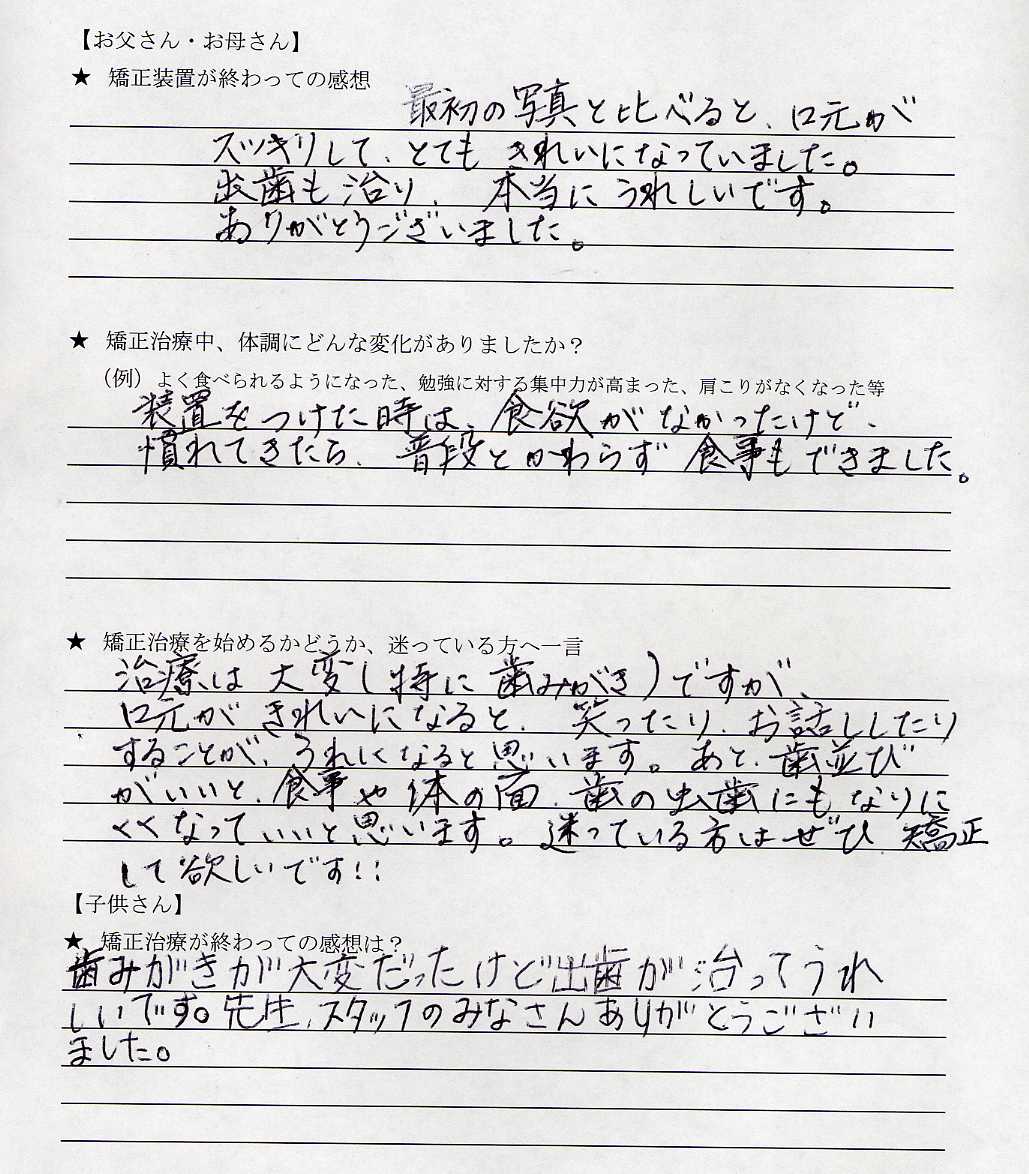 【お父さん・お母さん】
★ 矯正装置が終わっての感想
最初の写真と比べると、口元が
スッキリして、とても きれいになっていました。
出歯も治り、本当に うれしいです。
ありがとうございました。
★ 矯正治療中、体調にどんな変化がありましたか？
（例）よく食べられるようになった、勉強に対する集中力が高まった、肩こりがなくなった等
装置をつけた時は、食欲がなかったけど、
慣れてきたら、普段とかわらず 食事もできました。
★ 矯正治療を始めるかどうか、迷っている方へ一言
治療は 大変（特に 歯みがき）ですが、
口元が きれいになると、笑ったり、お話ししたり
することが、うれしくなると思います。あと、歯並び
がいいと、食事や 体の面、歯の虫歯にもなりに
くくなっていいと思います。迷っている方はぜひ 矯正
して欲しいです!!
【子供さん】
★ 矯正治療が終わっての感想は？
歯みがきが大変だったけど出歯が治ってうれ
しいです。先生、スタッフのみなさんありがとうござい
ました。